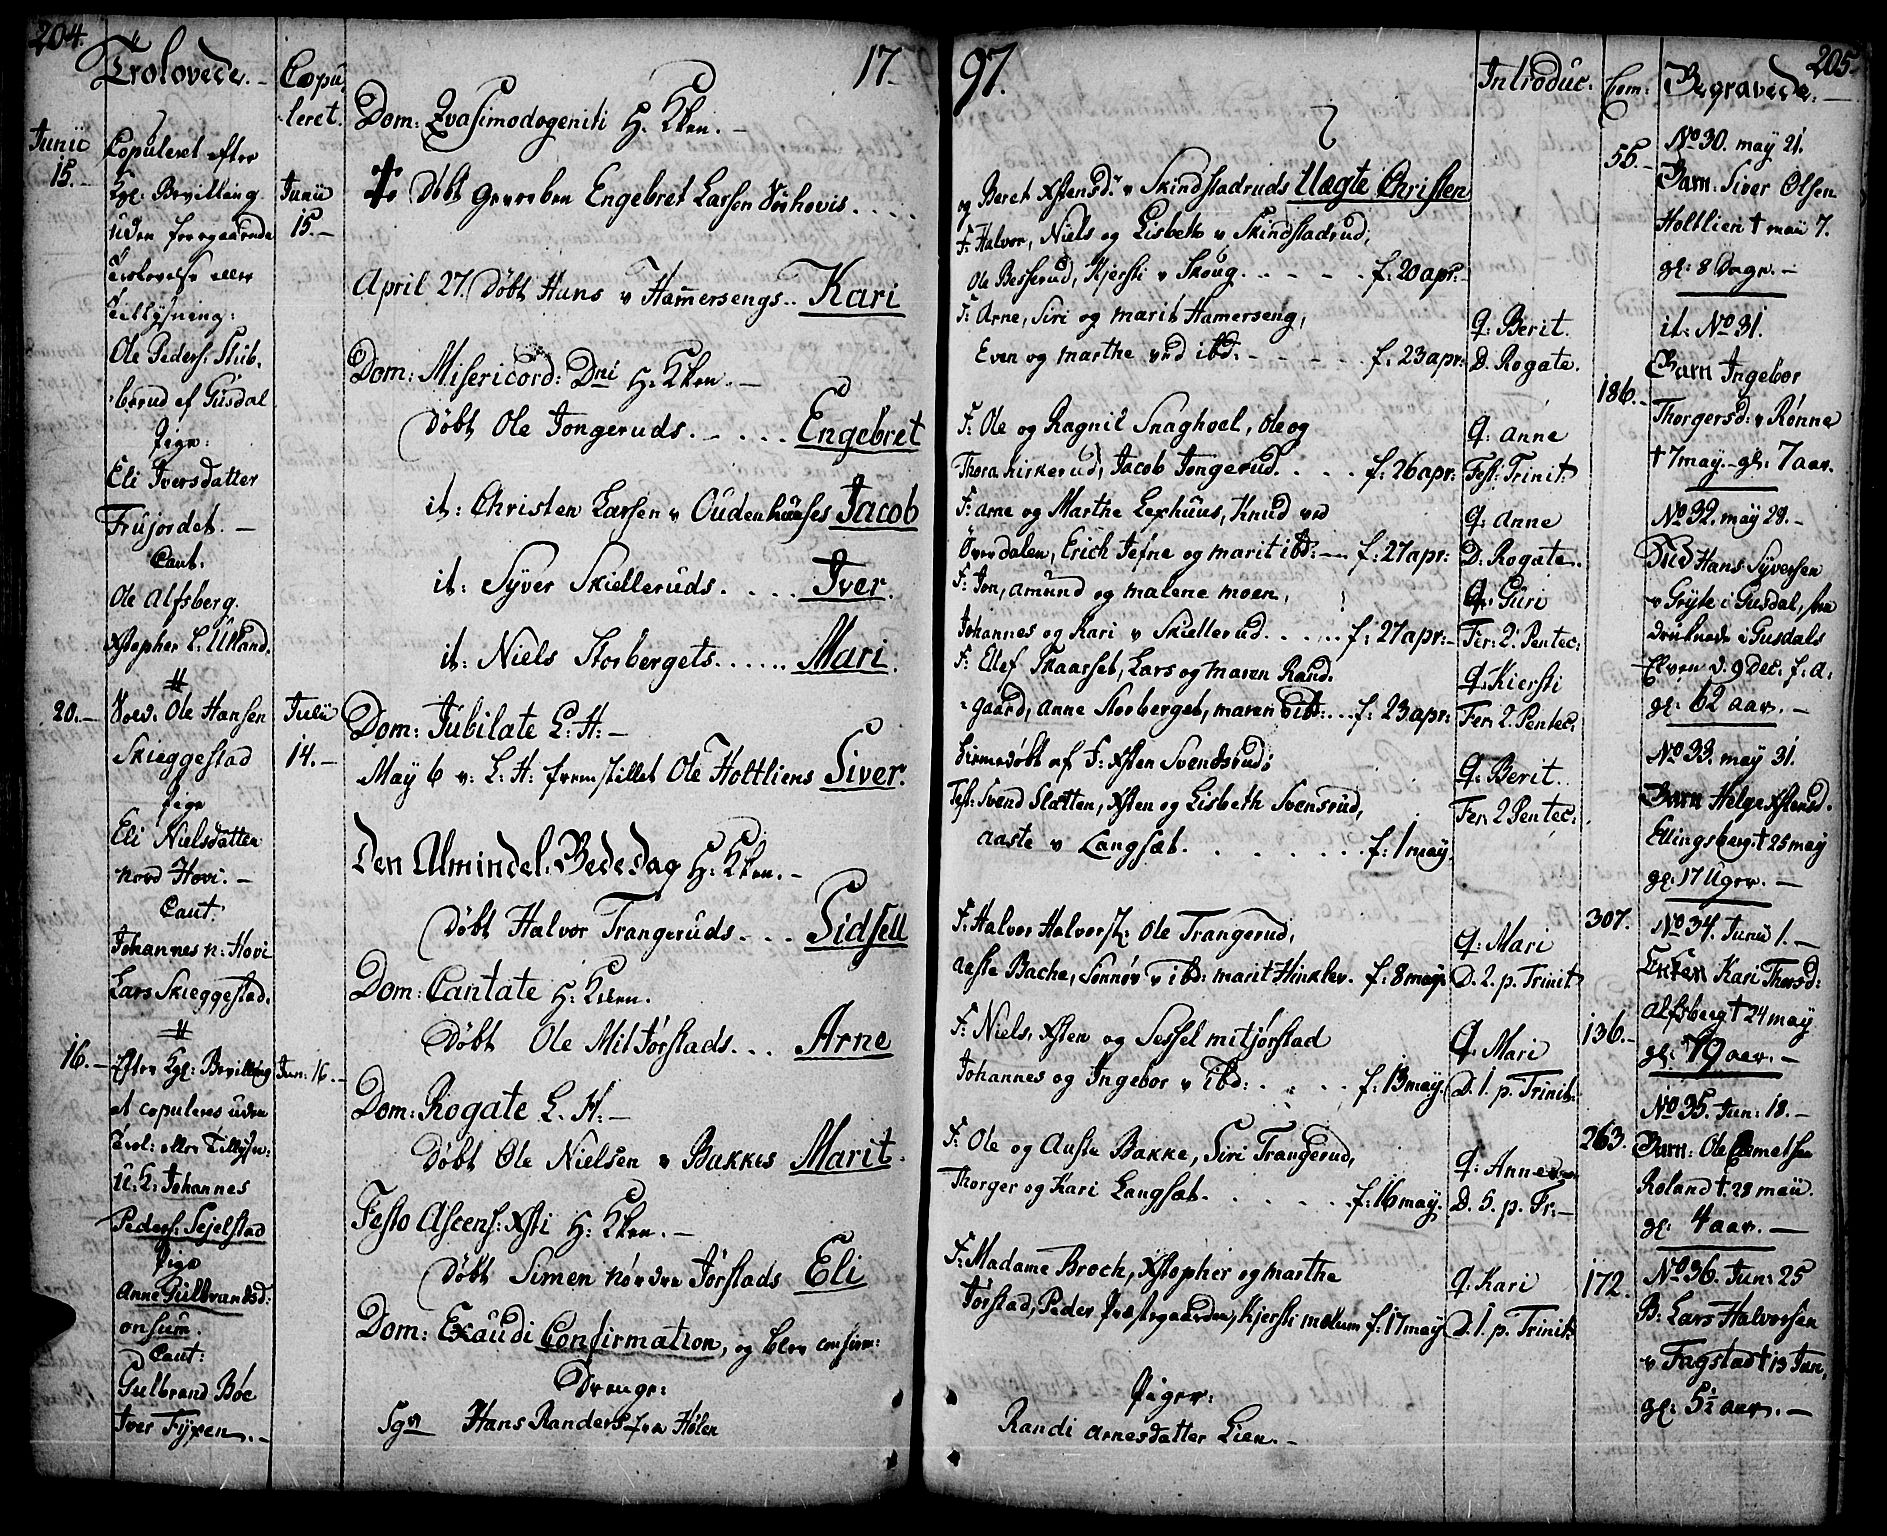 204.
Trolovede.
Copu-
leret.
Junii
15.
Copuleret efter
Kgl: Bevilling
uden foregaaende
Trolovelse eller
Tillysning:
Ole Peders: Stub-
berud af Gusdal
Pige:
Eli Iversdatter
Frujordet.
Caut:
Ole Alfsberg.
Xstopher L: Ulland.
Junii
15.
20.
Ole Hansen
Skieggestad
Pige
Eli Nielsdatter
nord Hovi.
Caut:
Johannes n: Hovi
Lars Skieggestad.
Julii
14.
16.
Efter Kgl: Bevilling
at copuleres uden
Trol: eller Tillysn:
U: K: Johannes
Peders: Sejelstad
Pige
Anne Gulbrandsd:
onsum.
Caut:
Gulbrand Böe
Iver Fyxen.
Jun: 16.
17
Dom: Qvasimodogeniti H: Kken.
Döbt Engebret Larsen
April 27. Döbt Hans v Hamersengs.. Kari
Dom: Misericord: Dni H: Kken.
Döbt Ole Jongeruds.... Engebret
it: Christen Larsen v Oudenhuuses Jacob
it: Syver Skielleruds..... Iver.
it: Niels Storbergets...... Mari.
Dom: Jubilate L: H:
May 6 v: L: H: fremstillet Ole Holtliens Siver.
Den Almindel: Bededag H: Kken.
Döbt Halvor Trangeruds... Sidsell
Dom: Cantate H: Kken.
Döbt Ole Mit Jörstads... Arne
Dom: Rogate L. H:
Döbt Ole Nielsen v Bakkes Marit.
Festo Ascens: Xsti H: Kken.
Döbt Simen nördre Jörstads Eli
Dom: Exaudi Confirmation, og blev confirm:
Drenge:
Hans Randers fra Hölen
97.
205.
Introduc.
Com:
Begravede.
og Beret Xstensd: v Skindstadruds Uægte Christen
F: Halvor, Niels og Lisbeth v Skindstadrud,
Ole Besserud, Kjersti v Skoug. f: 20 apr:
F: Arne, Siri og marit Hamerseng,
Even og marthe ved ibd: f: 23 apr:
F: Ole og Ragnil Snaghoel, Ole og
Thora Kirkerud, Jacob Jongerud. f: 26 apr:
F: Arne og Marthe Lexhuus, Knud ved
Överdalen, Erich Jefne og marit ibd: f: 27 apr:
F: Jon, amund og malene moen,
Johannes og Kari v Skiellerud...... f: 27 apr:
F: Ellef Skaarset, Lars og maren Rand-
gaard, Anne Storberget, maren ibd:... f: 23 apr:
hiemedöbt af F: Xsten Svendsrud;
Test: Svend Slatten, Xsten og Lisbeth Svensrud,
aaste v Langsæt. f: 1 may.
F: Halvor Halvors: Ole Trangerud,
aaste Bache, Sönnöv v ibd: marit Hinklev. f: 8 may.
F: Niels, Xsten og Sessel mitjörstad
Johannes og Ingebor v ibd: f: 13 may.
F: Ole og Aaste Bakke, Siri Trangerud,
Thorger og Kari Langsæt. f: 16 may.
F: Madame Broch, Xstopher og marthe
Jörstad, Peder Præstegaarden, Kjersti mælum f: 17 may
Piger:
Randi Arnesdatter Lien.
Q: Berit.
D. Rogate.
Q: Anne
Fest: Trinit:
Q: Anne
D: Rogate.
Q: Guri
Fer: 2. Pentec:
Q: Kiersti
Fer: 2. Pentec:
Q: Berit.
Fer: 2 Pentec:
Q: Mari
D. 2. p. Trinit
Q: Mari
D. 1. p. Trinit:
Q: Anne
D. 5. p. Tr:
Q: Kari
D. 1. p. Trinit:
55.
186.
307.
136.
263.
172.
No 30. may 21.
Barn: Siver Olsen
Holtlien † maii 7.
gl: 8 Dage.
it: No 31.
Barn Ingebor
Thorgersd: v Rönne
† 7 may. gl: 7 aar.
No 32. may 28.
Hans Syversen
v Gryte i Gusdal, som
druknede i Gusdals
Elven d: 9 Dec: f: a:
gl: 62 aar.
No 33. may 31.
Barn Helge Xstensd.
Ellingsberg. † 25 may
gl: 17 Uger.
No 34. Junii 1.
Enken Kari Thorsd:
Alfsberg † 24 may
gl: 79 aar.
No 35. Jun: 18.
Barn: Ole
Roland † 28 maii.
gl: 4 aar.
No 36. Jun: 25
B: Lars Halvorsen
v Fagstad † 13 Jun,
gl: 5½ aar.